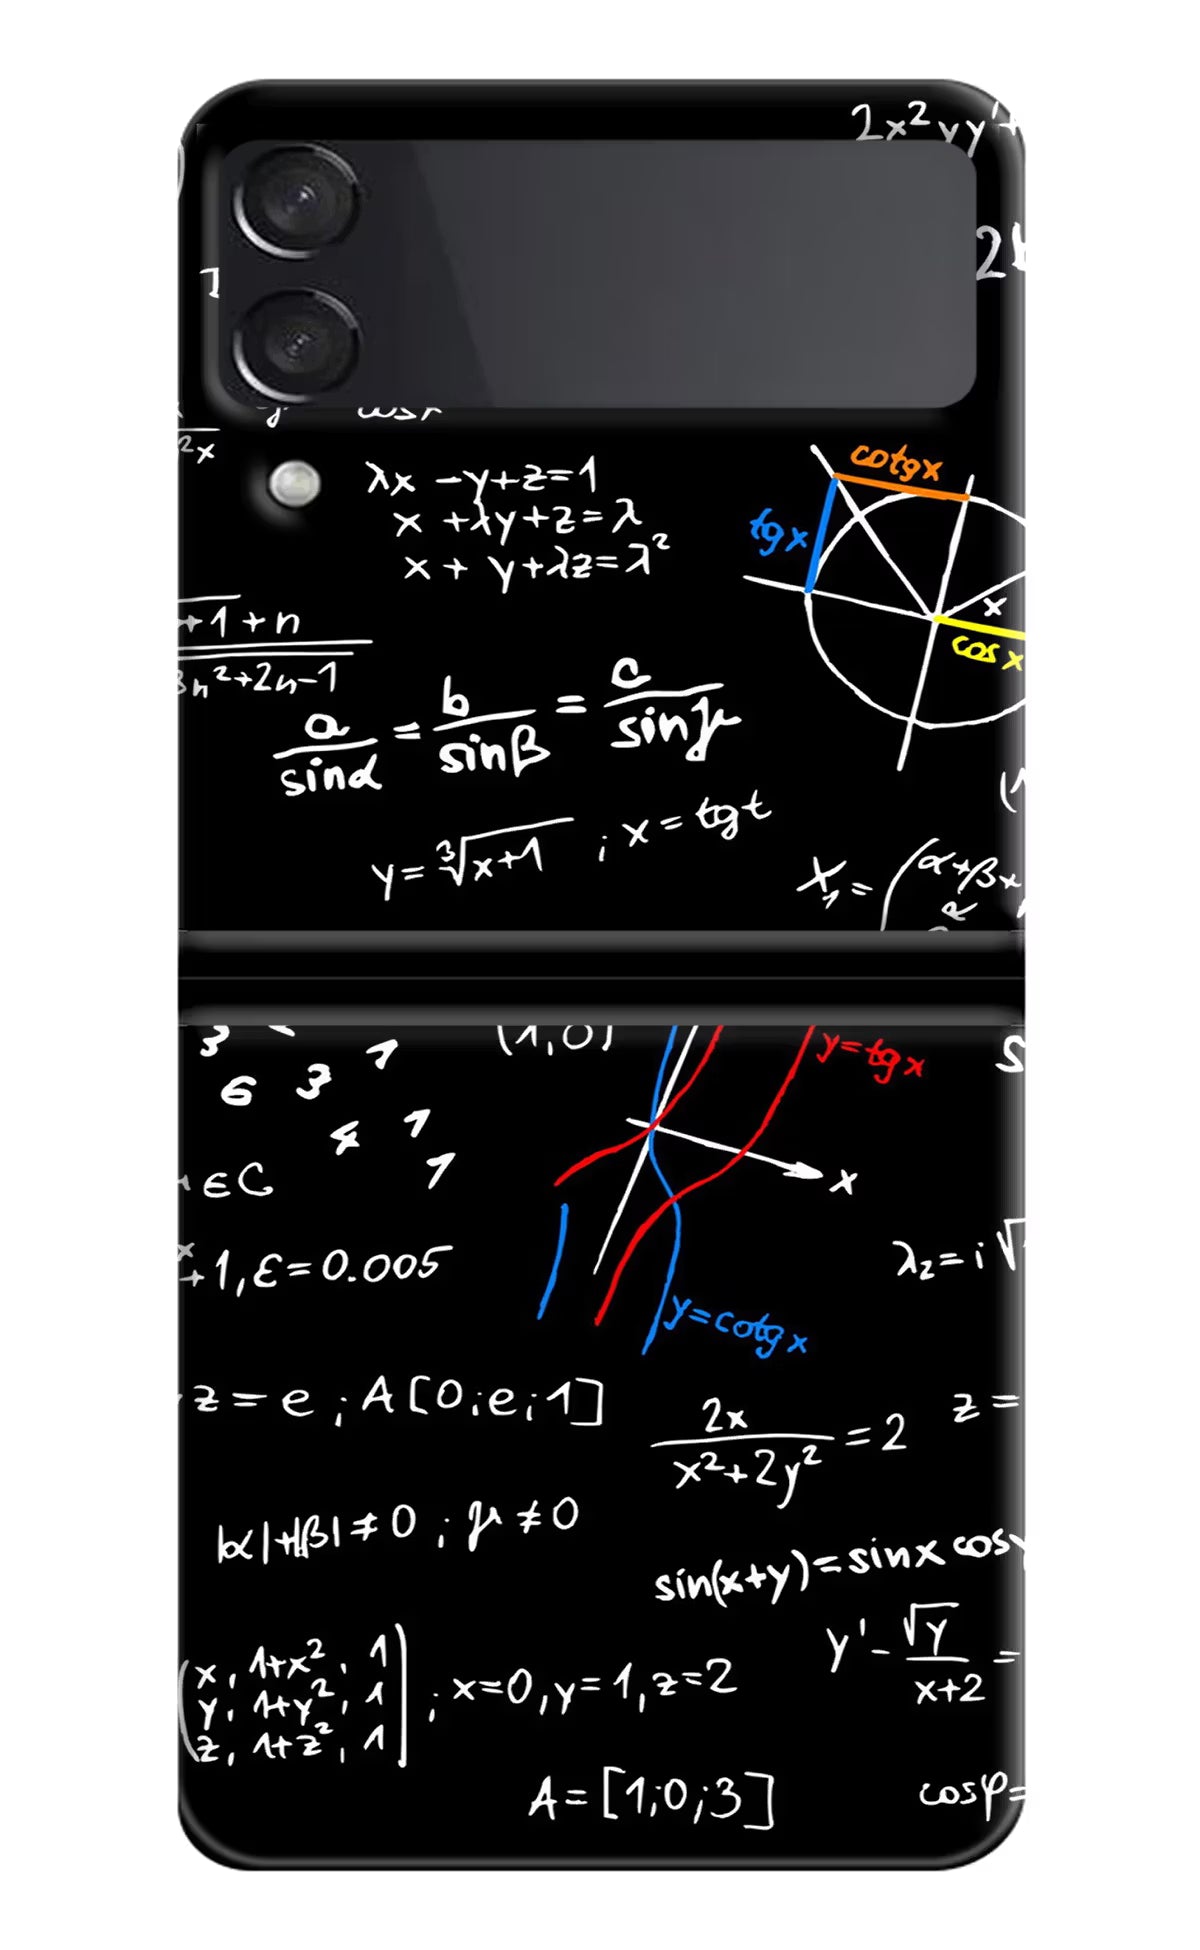 2x² yy'+
cotgx
λx - y + z = 1
x + λy + z = λ
x + y + λz = λ²
tgx
x
cos x
+1 + n
3n²+2n-1
a/sinα = b/sinβ = c/sinγ
y = ∛x+1 ; x = tgt
X₁ = (α+β+
(1,0)
y=tgx
3
6 3 1
4 1
1
x
∈C
+1, ε=0.005
λ₂=i√
y=cotgx
z = e ; A[0;e;1]
2x/x²+2y² = 2
z =
|α|+|β|≠0 ; μ≠0
sin(x+y)=sinx cosy
y' - √y/x+2 =
x, 1+x², 1
y, 1+y², 1
z, 1+z², 1
; x=0, y=1, z=2
A=[1;0;3]
cosφ=